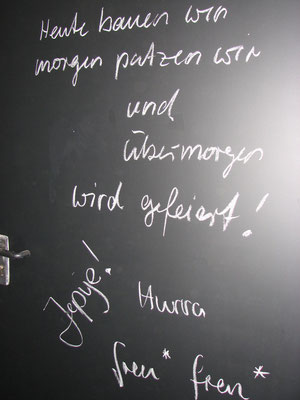 Heute bauen wir
morgen putzen wir
und
übermorgen
wird gefeiert!
Hurra
freu* freu*